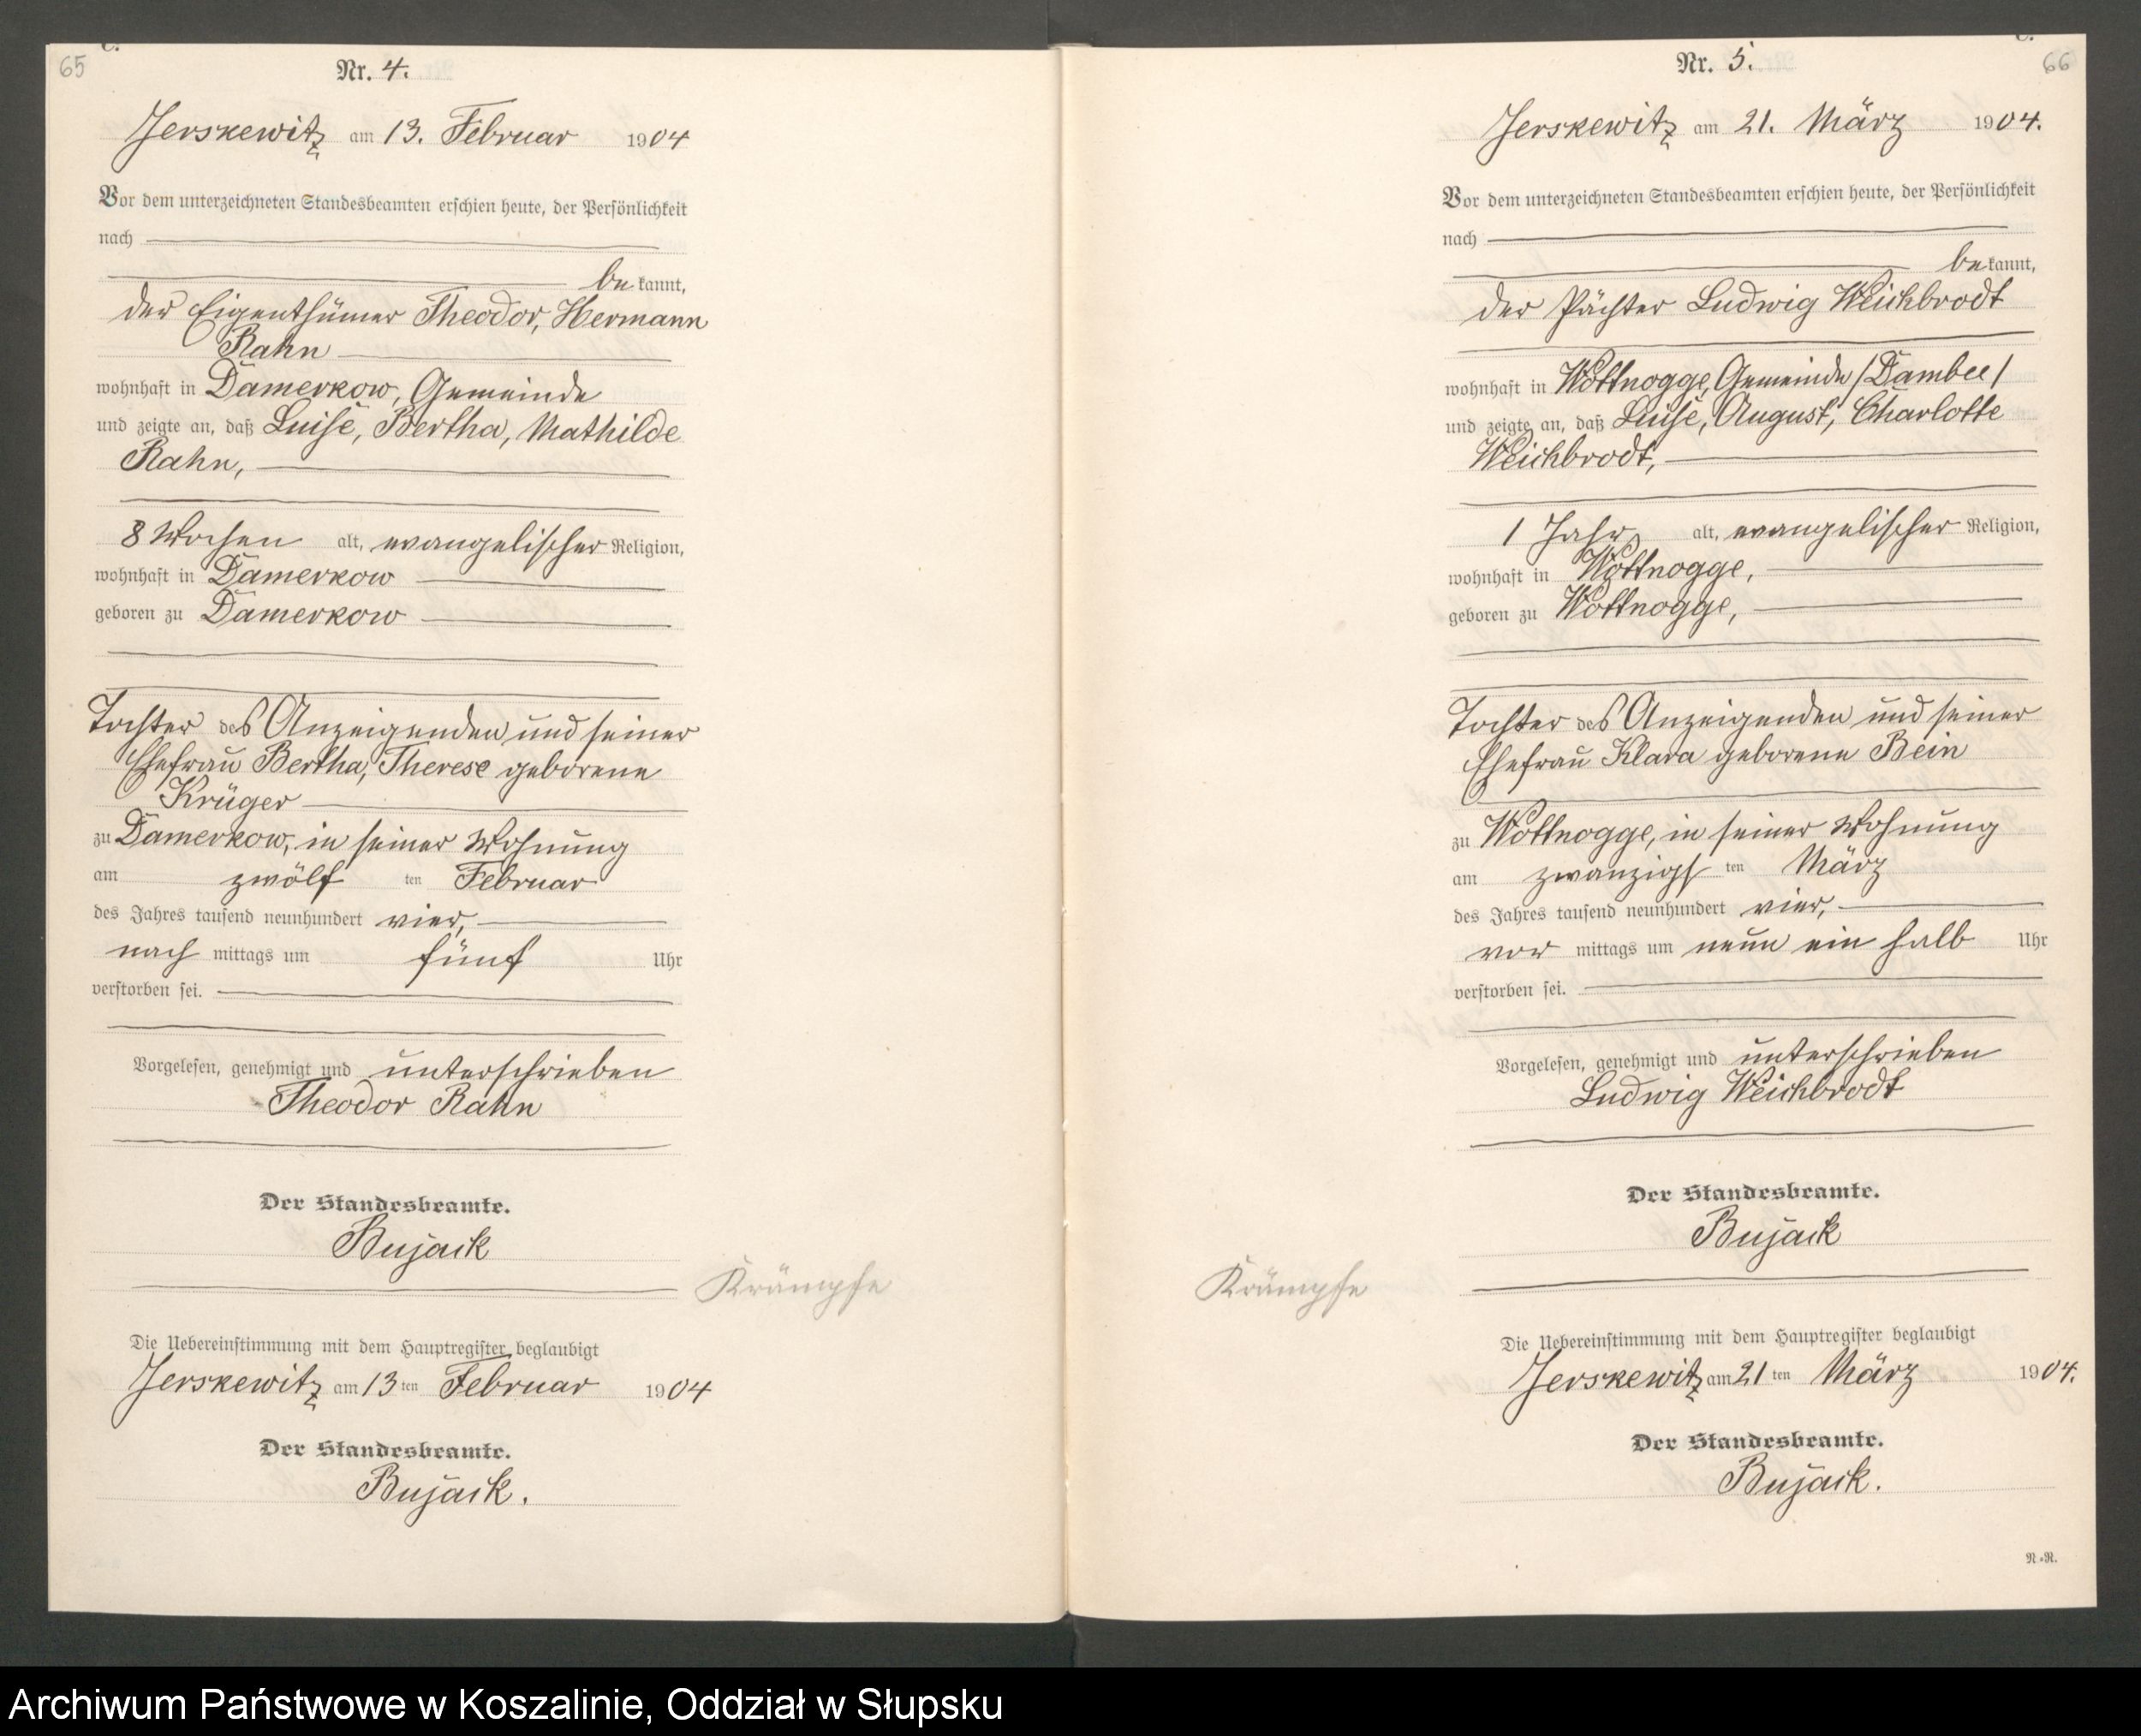 65
C.
Nr. 4.
Jerskewitz am 13. Februar 1904
Vor dem unterzeichneten Standesbeamten erschien heute, der Persönlichkeit
nach
be kannt,
der Eigenthümer Theodor, Hermann
Rahn
wohnhaft in Damerkow, Gemeinde
und zeigte an, daß Luise, Bertha, Mathilde
Rahn,
8 Wochen alt, evangelischer Religion,
wohnhaft in Damerkow
geboren zu Damerkow
Tochter des Anzeigenden und seiner
Ehefrau Bertha, Therese geborene
Krüger
zu Damerkow, in seiner Wohnung
am zwölf ten Februar
des Jahres tausend neunhundert vier,
nach mittags um fünf Uhr
verstorben sei.
Vorgelesen, genehmigt und unterschrieben
Theodor Rahn
Der Standesbeamte.
Bujack
Krämpfe
Die Uebereinstimmung mit dem Hauptregister beglaubigt
Jerskewitz am 13 ten Februar 1904
Der Standesbeamte.
Bujack.
C.
66
Nr. 5.
Jerskewitz am 21. März 1904.
Vor dem unterzeichneten Standesbeamten erschien heute, der Persönlichkeit
nach
be kannt,
der Pächter Ludwig Weichbrodt
wohnhaft in Wottnogge, Gemeinde /Dambee/
und zeigte an, daß Luise, August, Charlotte
Weichbrodt,
1 Jahr alt, evangelischer Religion,
wohnhaft in Wottnogge,
geboren zu Wottnogge,
Tochter des Anzeigenden und seiner
Ehefrau Klara geborene Bein
zu Wottnogge, in seiner Wohnung
am zwanzigs ten März
des Jahres tausend neunhundert vier,
vor mittags um neun ein halb Uhr
verstorben sei.
Vorgelesen, genehmigt und unterschrieben
Ludwig Weichbrodt
Der Standesbeamte.
Bujack
Krämpfe
Die Uebereinstimmung mit dem Hauptregister beglaubigt
Jerskewitz am 21 ten März 1904.
Der Standesbeamte.
Bujack.
N.-R.
Archiwum Państwowe w Koszalinie, Oddział w Słupsku